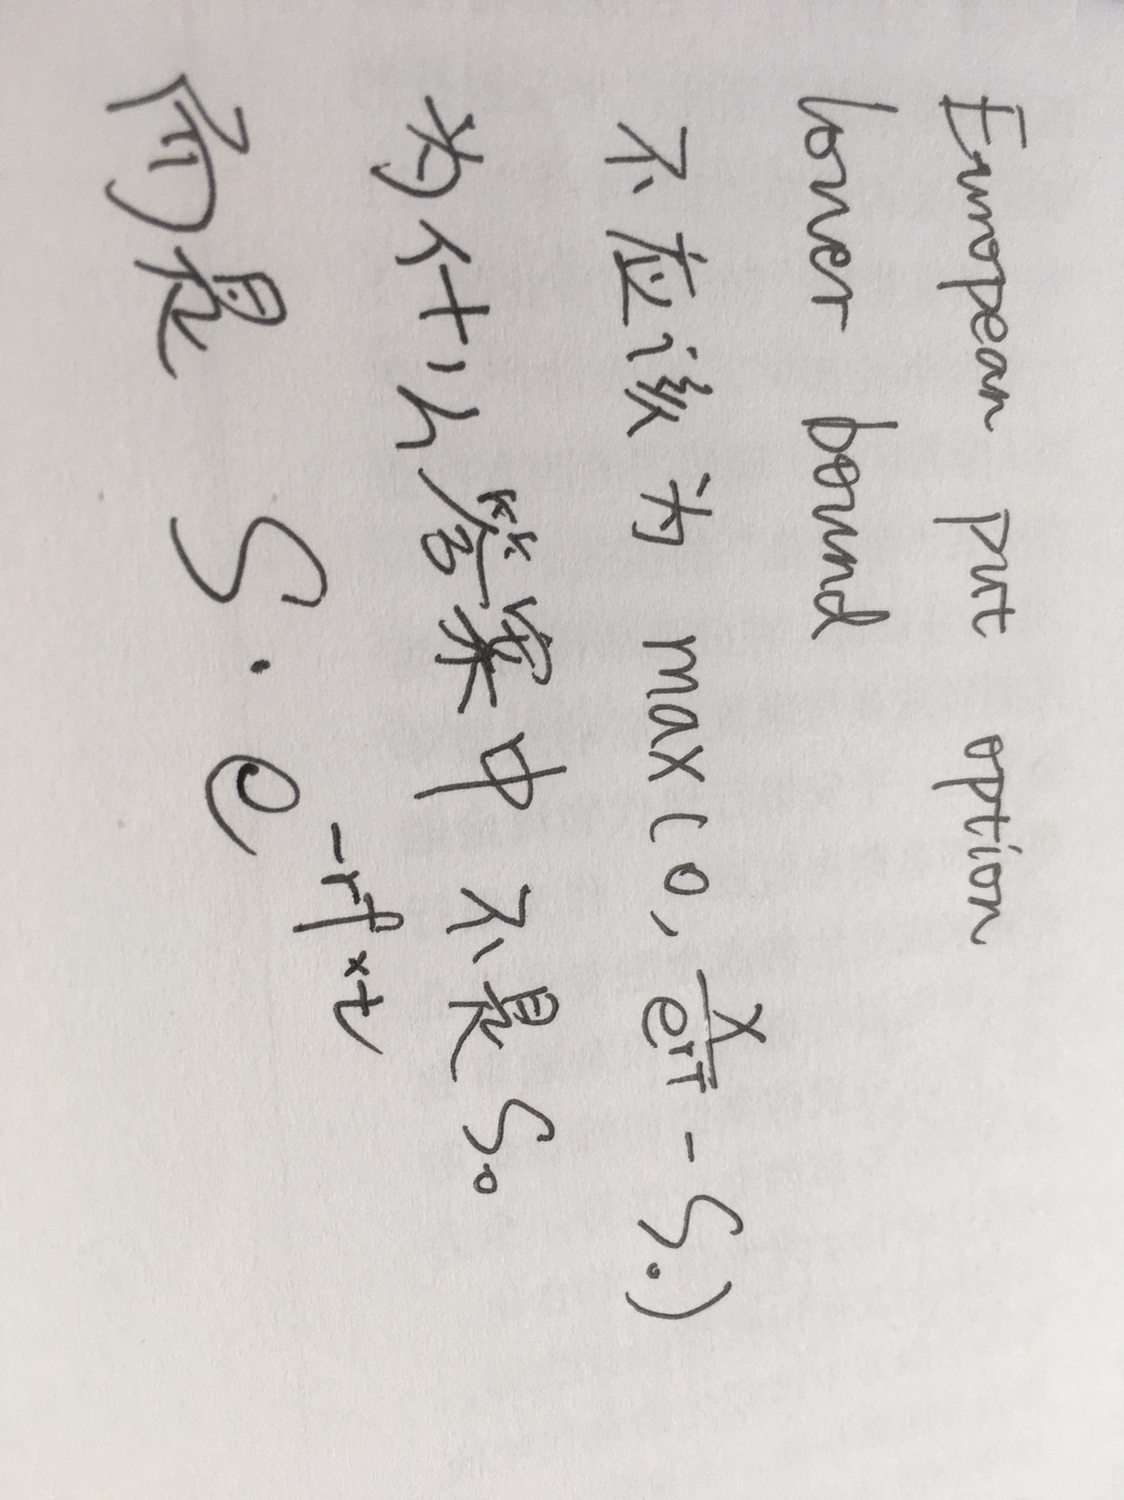 European put option
lower bound
不应该为 max(0, X/e^rT - S.)
为什么答案中不是S0
而是 S·e^-rf×t